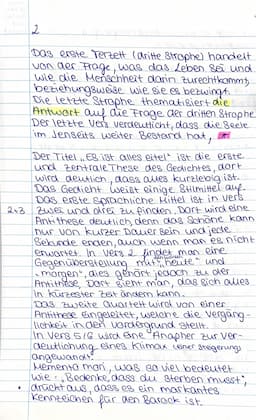 2
Das erste Terzett (dritte Strophe) handelt
von der Frage, was das Leben sei und
wie die Menschheit darin zurechtkommt,
beziehungsweise wie sie es bezwingt.
Die letzte Strophe thematisiert die
Antwort auf die Frage der dritten Strophe
Der letzte Vers verdeutlicht, dass die Seele
im Jenseits weiter Bestand hat,
Der Titel „Es ist alles eitel" ist die erste
und zentrale These des Gedichtes, dort
wird deutlich, dass alles kurzlebig ist.
Das Gedicht weist einige Stilmittel auf.
Das erste sprachliche Mittel ist in Vers
2+3 zwei und drei zu finden. Dort wird eine
Antithese deutlich, denn das Schöne kann
nur von kurzer Dauer sein und jede
Sekunde enden, auch wenn man es nicht
erwartet. In Vers 2 findet man eine
Gegenüberstellung mit „heute" und
„morgen", dies gehört jedoch zu der
Antithese. Dort sieht man, dass sich alles
in kürzester Zeit ändern kann.
Das zweite Quartett wird von einer
Antithese eingeleitet, welche die Vergäng-
lichkeit in den Vordergrund stellt.
In Vers 5/6 wird eine Anapher zur Ver-
deutlichung eines Klimax (einer Steigerung)
angewandt.
Memento mori, was so viel bedeutet
wie: „Bedenke, dass du sterben musst",
drückt aus, dass es ein markantes
Kennzeichen für den Barock ist.